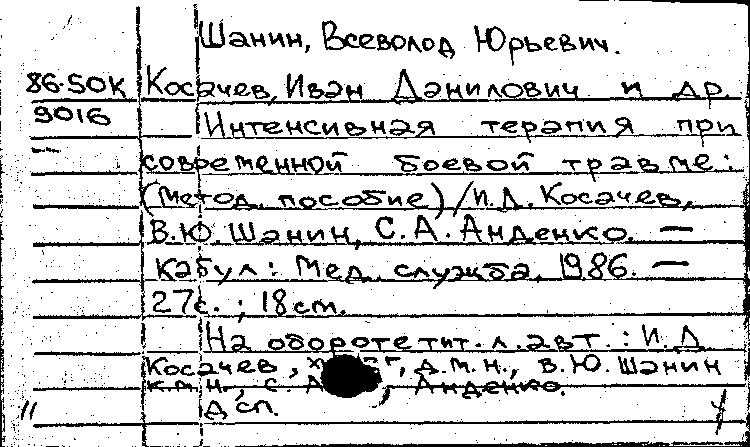 Шанин, Всеволод Юрьевич.
86-50К Косачев, Иван Данилович и др.
9016 Интенсивная терапия при
современной боевой травме:
(Метод. пособие) / И.Д. Косачев,
В.Ю. Шанин, С.А. Анденко. —
Кабул: Мед. служба, 1986. —
27с. ; 18см.
На обороте тит. л. авт.: И.Д.
Косачев, д.м.н., В.Ю. Шанин
к.м.н., С. Анденко.
Дсп.